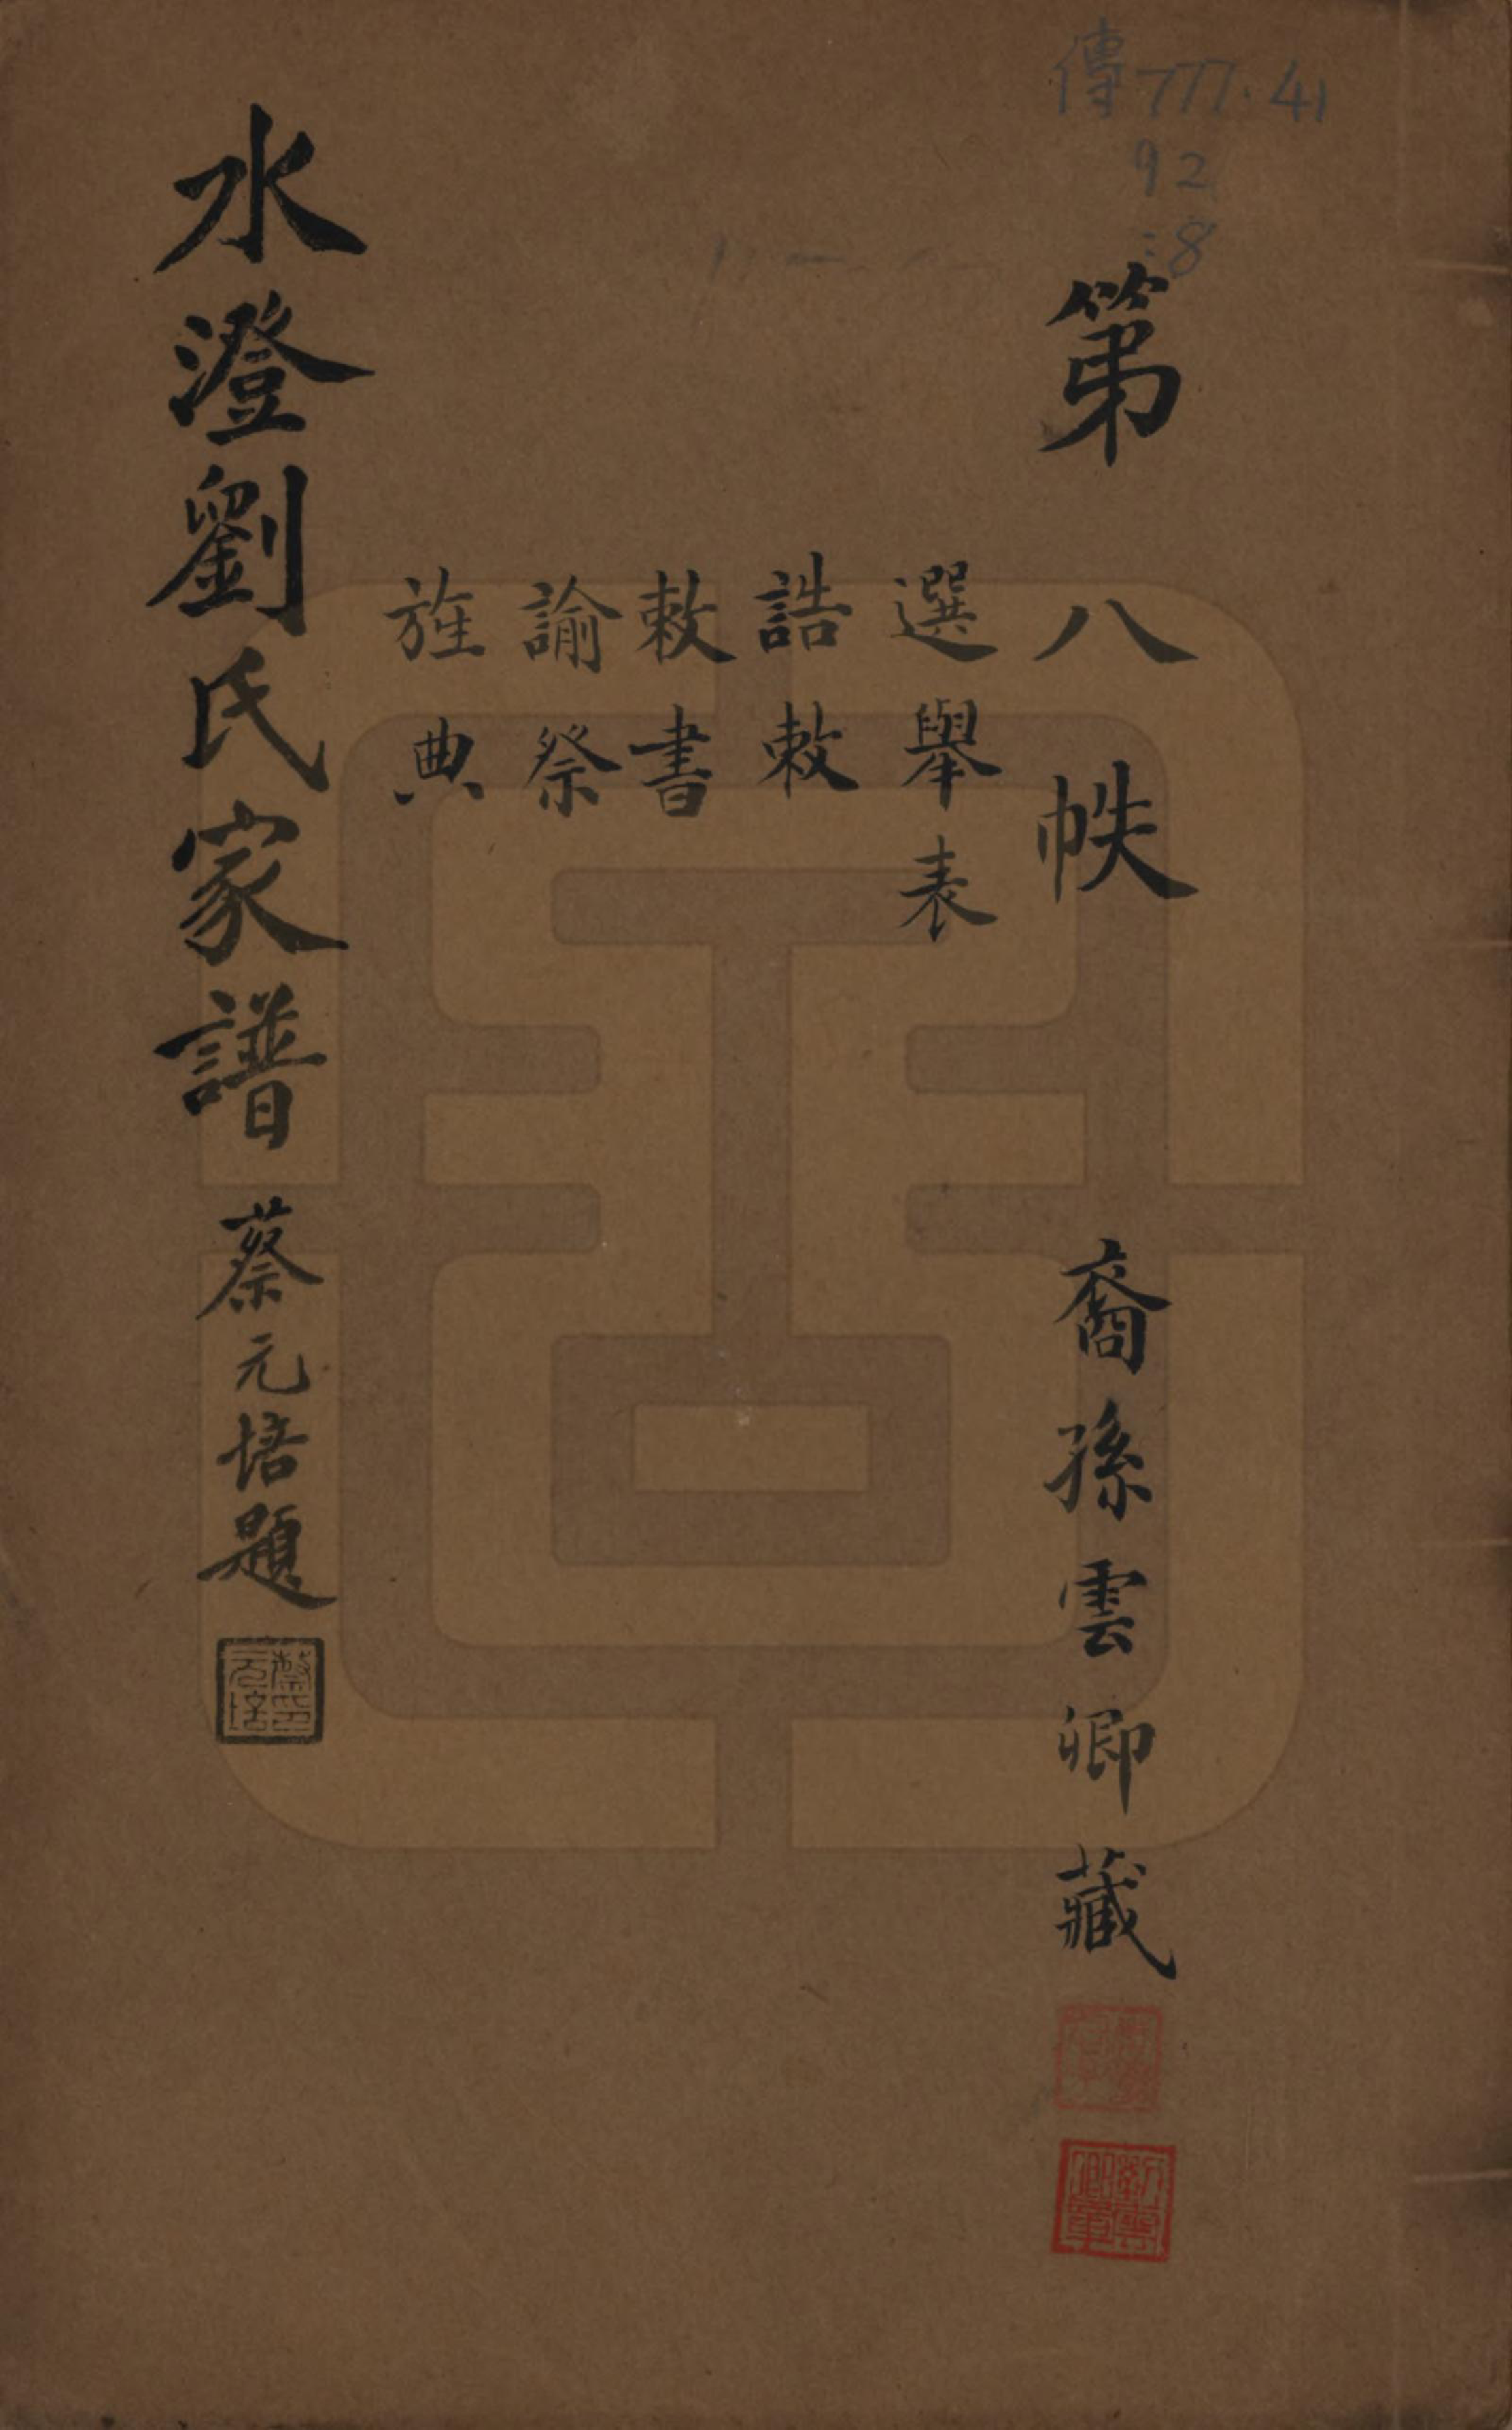 傳777.41
92
:8
第八帙 裔孫雲卿藏
選舉表
誥敕
敕書
諭祭
旌典
水澄劉氏家譜 蔡元培題
蔡元培印